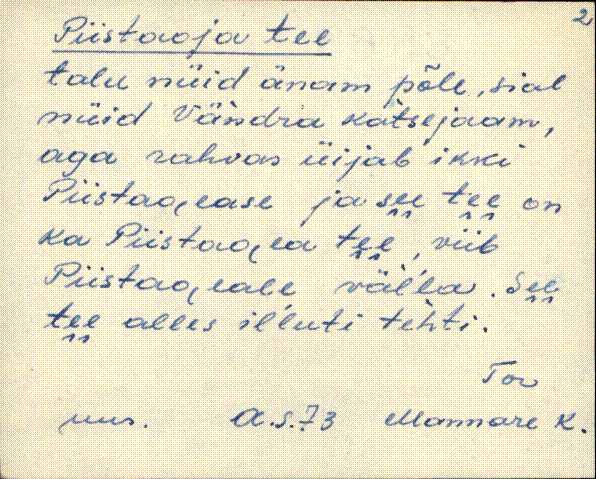 2
Piistaoja tee
talu nüid änam põle, sial
nüid Vändra katsejaam,
aga rahvas üijab ikki
Piistaoease ja see tee on
ka Piistaoea tee, viib
Piistaoeale välla. See
tee alles illuti tehti.
Tor
uus. A.S.73 Mannare K.